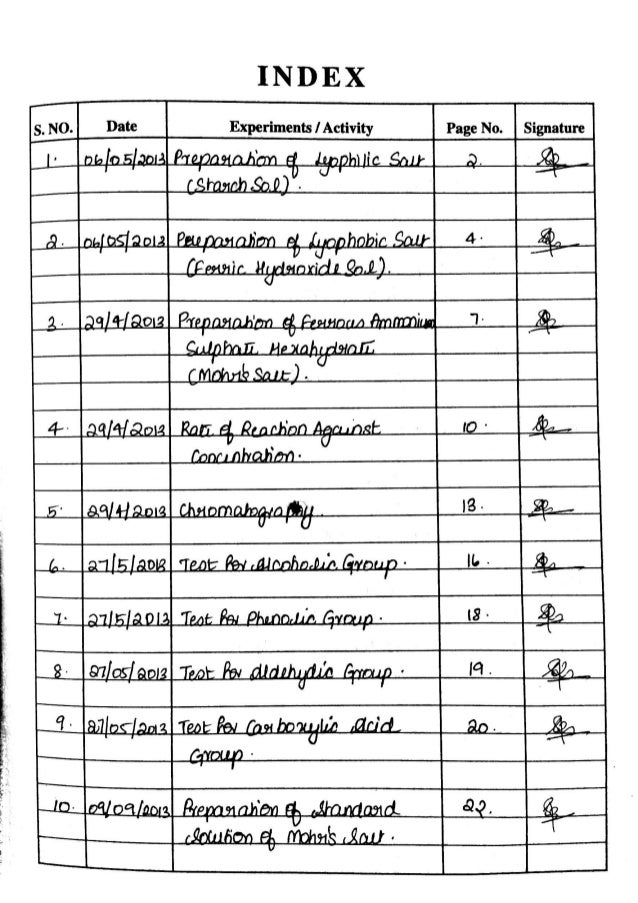 INDEX
S. NO. Date Experiments / Activity Page No. Signature
1. 06/05/2013 Preparation of Lyophilic Salt 2.
(Starch Sol).
2. 06/05/2013 Preparation of Lyophobic Salt 4.
(Ferric Hydroxide Sol).
3. 29/4/2013 Preparation of Ferrous Ammonium 7.
Sulphate Hexahydrate
(Mohr's Salt).
4. 29/4/2013 Rate of Reaction Against 10.
Concentration.
5. 29/4/2013 Chromatography 13.
6. 27/5/2013 Test for Alcoholic Group. 16.
7. 27/5/2013 Test for Phenolic Group. 18.
8. 27/05/2013 Test for Aldehydic Group. 19.
9. 27/05/2013 Test for Carboxylic Acid 20.
Group.
10. 09/09/2013 Preparation of Standard 22.
Solution of Mohr's Salt.